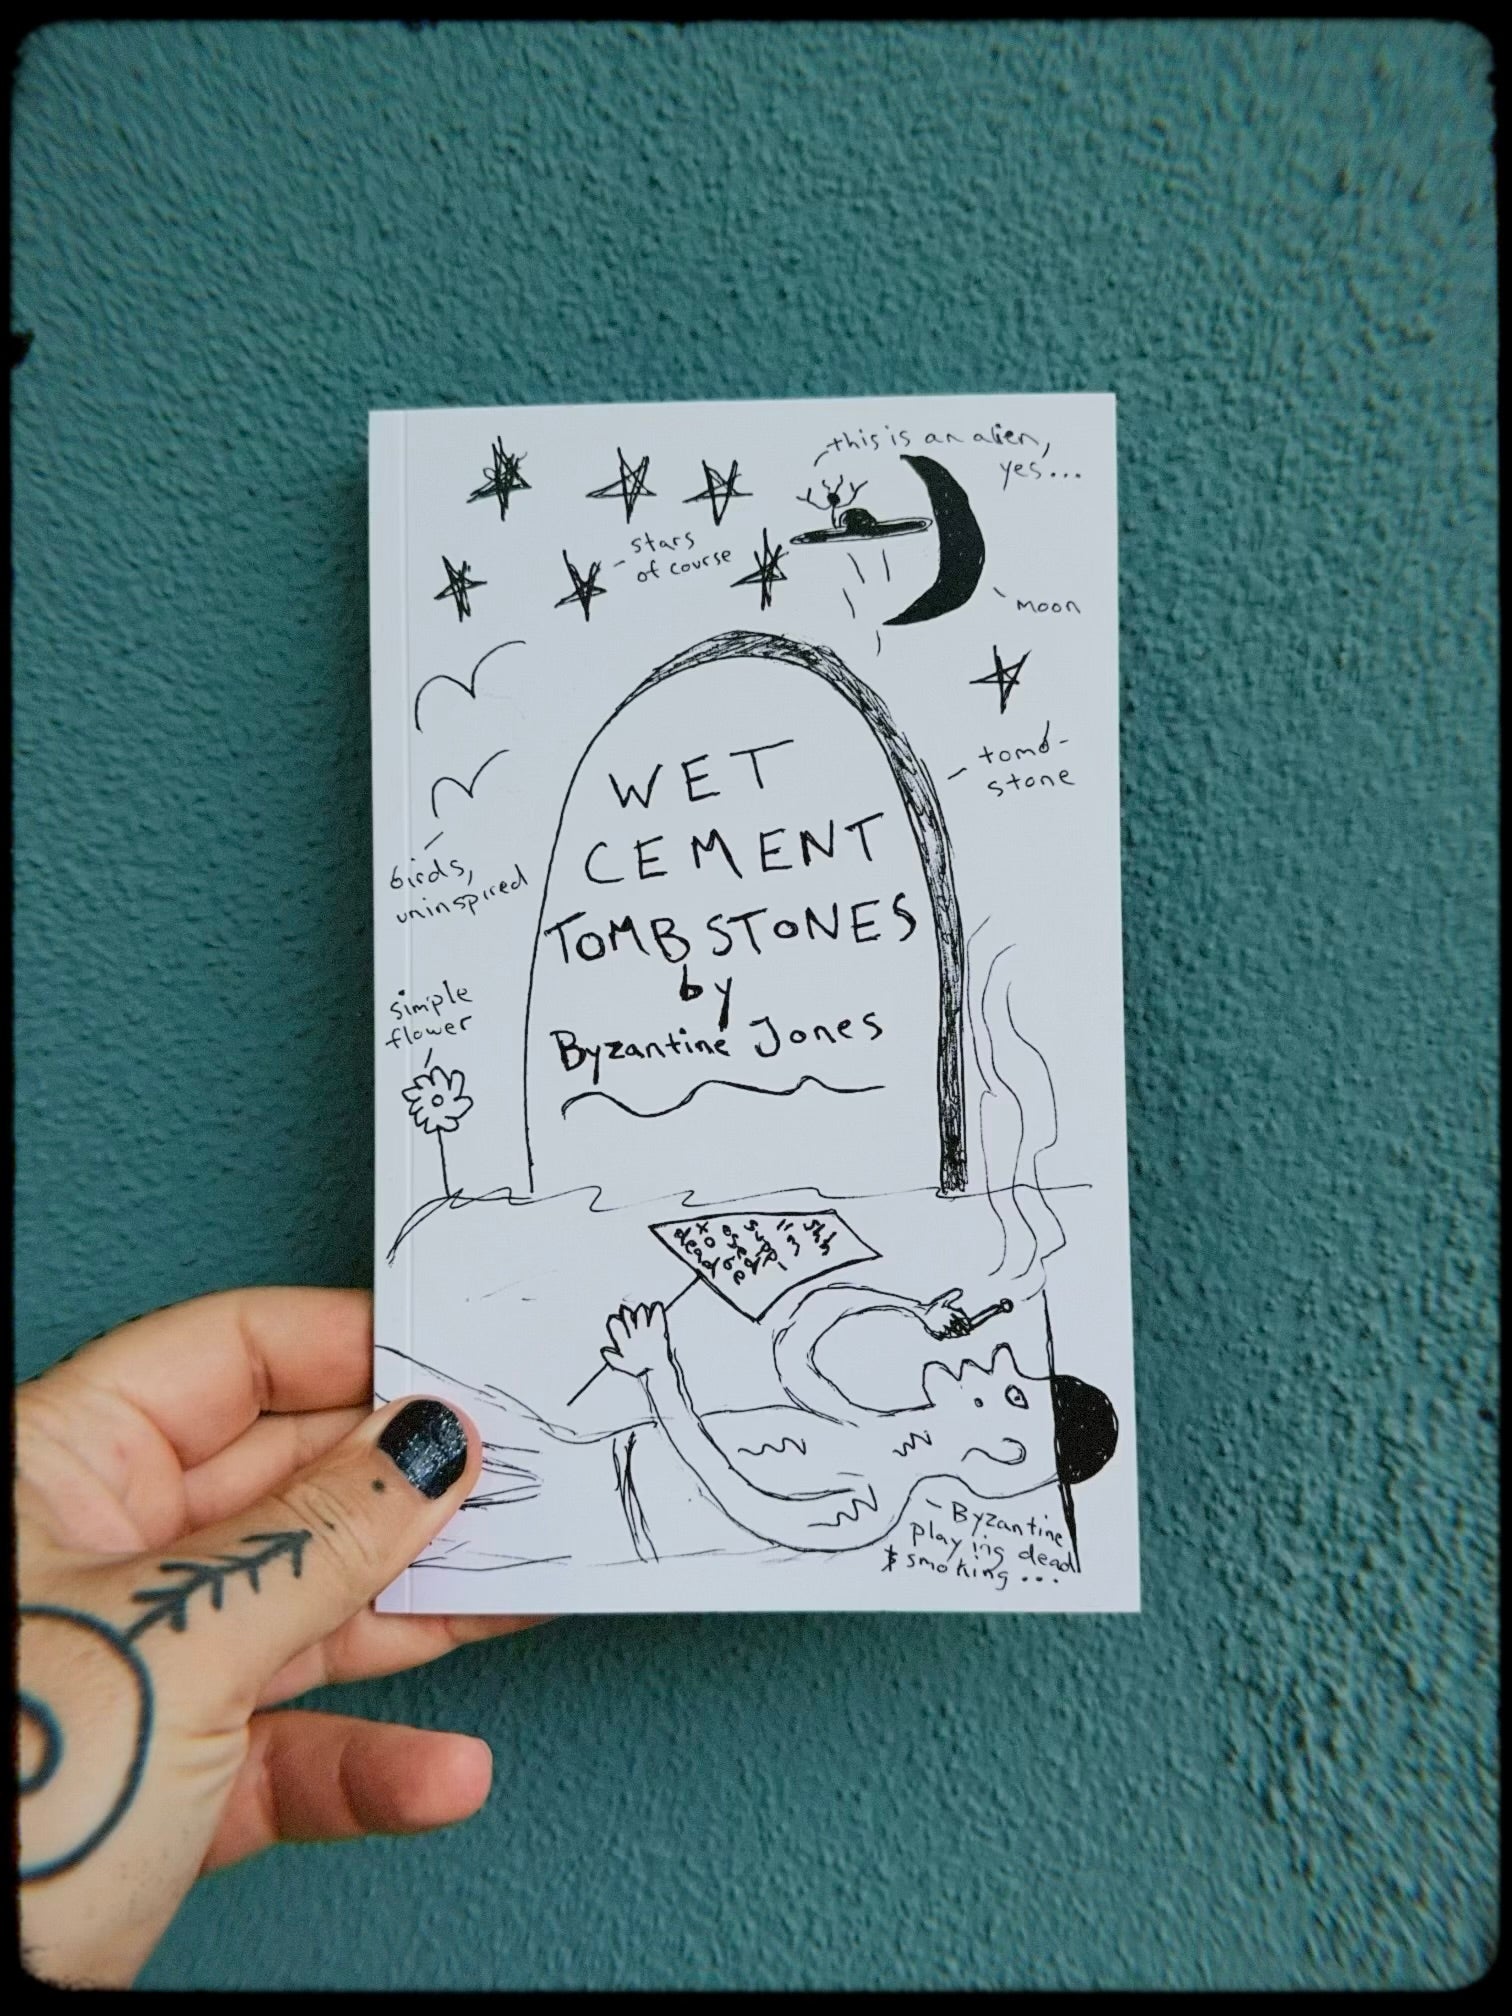 this is an alien,
yes...
stars
of course
moon
tomb-
stone
WET
CEMENT
TOMBSTONES
by
Byzantine Jones
birds,
uninspired
simple
flower
- Byzantine
playing dead
& smoking...